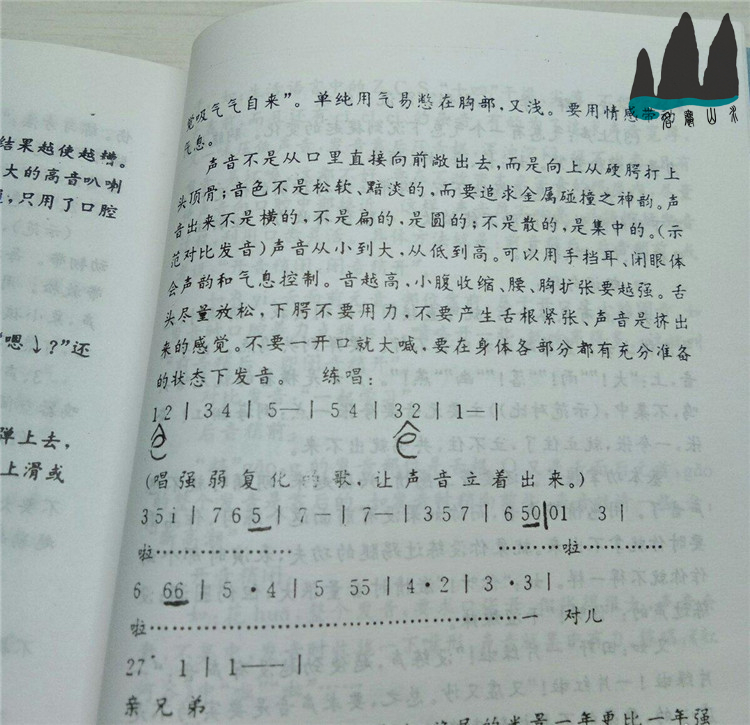 结果越使越糟。
大的高音叭喇
只用了口腔
“嗯↓?”还
弹上去,
上滑或
觉吸气气自来”。单纯用气易憋在胸部,又浅。要用情感带
气息。
声音不是从口里直接向前敞出去,而是向上从硬腭打上
头顶骨;音色不是松软、黯淡的,而要追求金属碰撞之神韵。声
音出来不是横的,不是扁的,是圆的;不是散的,是集中的。(示
范对比发音)声音从小到大,从低到高。可以用手挡耳、闭眼体
会声韵和气息控制。音越高、小腹收缩、腰、胸扩张要越强。舌
头尽量放松,下腭不要用力,不要产生舌根紧张、声音是挤出
来的感觉。不要一开口就大喊,要在身体各部分都有充分准备
的状态下发音。 练唱:
12 | 34 | 5— | 54 | 32 | 1— |
(唱强弱复化的歌,让声音立着出来。)
35i | 765 | 7— | 7— | 357 | 650 | 01 3 |
啦………………… ………啦…………
6 66 | 5·4 | 5 55 | 4·2 | 3·3 |
啦……………………………………………一 对儿
27· 1 | 1—— |
亲兄弟
山水